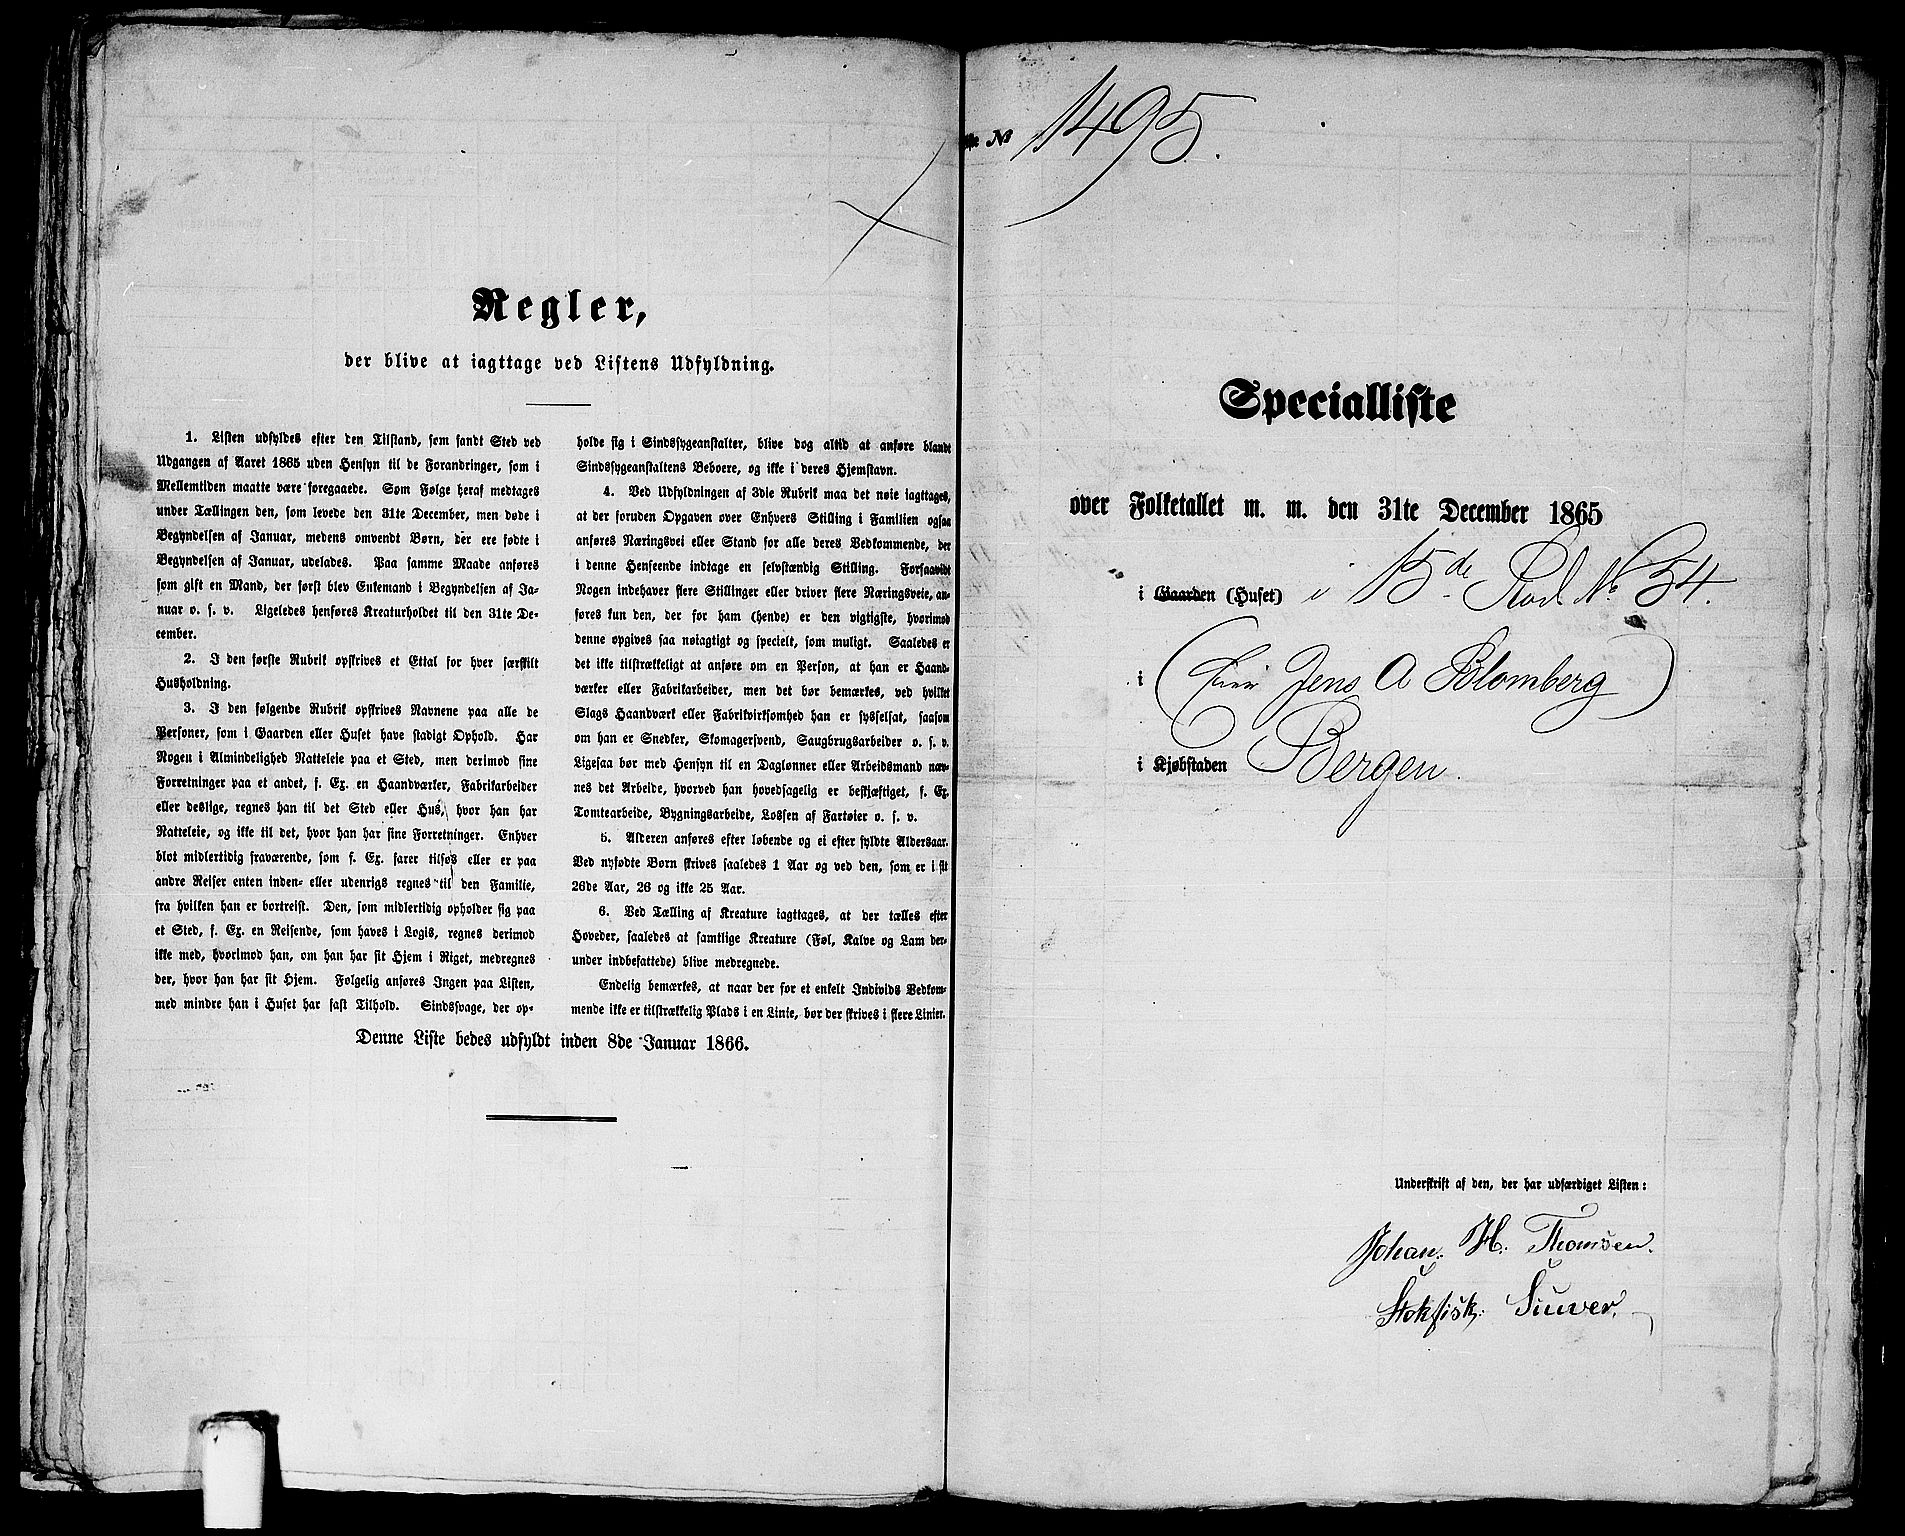 Regler,
der blive at iagttage ved Listens Udfyldning.
1. Listen udfyldes efter den Tilstand, som fandt Sted ved
Udgangen af Aaret 1865 uden Hensyn til de Forandringer, som i
Mellemtiden maatte være foregaaede. Som Følge heraf medtages
under Tællingen den, som levede den 31te December, men døde i
Begyndelsen af Januar, medens omvendt Børn, der ere fødte i
Begyndelsen af Januar, udelades. Paa samme Maade anføres
som gift en Mand, der først blev Enkemand i Begyndelsen af Ja-
nuar o. s. v. Ligeledes henføres Kreaturholdet til den 31te De-
cember.
2. I den første Rubrik opskrives et Ettal for hver særskilt
Husholdning.
3. I den følgende Rubrik opskrives Navnene paa alle de
Personer, som i Gaarden eller Huset have stadigt Ophold. Har
Nogen i Almindelighed Natteleie paa et Sted, men derimod sine
Forretninger paa et andet, f. Ex. en Haandværker, Fabrikarbeider
eller deslige, regnes han til det Sted eller Hus, hvor han har
Natteleie, og ikke til det, hvor han har sine Forretninger. Enhver
blot midlertidig fraværende, som f. Ex. farer tilsøs eller er paa
andre Reiser enten inden- eller udenrigs regnes til den Familie,
fra hvilken han er bortreist. Den, som midlertidig opholder sig paa
et Sted, f. Ex. en Reisende, som haves i Logis, regnes derimod
ikke med, hvorimod han, om han har sit Hjem i Riget, medregnes
der, hvor han har sit Hjem. Følgelig anføres Ingen paa Listen,
med mindre han i Huset har fast Tilhold. Sindssvage, der op-
holde sig i Sindssygeanstalter, blive dog altid at anføre blandt
Sindssygeanstaltens Beboere, og ikke i deres Hjemstavn.
4. Ved Udfyldningen af 3die Rubrik maa det nøie iagttages,
at der foruden Opgaven over Enhvers Stilling i Familien ogsaa
anføres Næringsvei eller Stand for alle deres Vedkommende, der
i denne Henseende indtage en selvstændig Stilling. Forsaavidt
Nogen indehaver flere Stillinger eller driver flere Næringsveie, an-
føres kun den, der for ham (hende) er den vigtigste, hvorimod
denne opgives saa nøiagtigt og specielt, som muligt. Saaledes er
det ikke tilstrækkeligt at anføre om en Person, at han er Haand-
værker eller Fabrikarbeider, men det bør bemærkes, ved hvilket
Slags Haandværk eller Fabrikvirksomhed han er sysselsat, saasom
om han er Snedker, Skomagersvend, Saugbrugsarbeider o. s. v.
Ligesaa bør med Hensyn til en Daglønner eller Arbeidsmand næv-
nes det Arbeide, hvorved han hovedsagelig er beskjæftiget, f. Ex.
Tomtearbeide, Bygningsarbeide, Lossen af Fartøier o. s. v.
5. Alderen anføres efter løbende og ei efter fyldte Aldersaar.
Ved nyfødte Børn skrives saaledes 1 Aar og ved den, som er i sit
26de Aar, 26 og ikke 25 Aar.
6. Ved Tælling af Kreature iagttages, at der tælles efter
Hoveder, saaledes at samtlige Kreature (Føl, Kalve og Lam der-
under indbefattede) blive medregnede.
Endelig bemærkes, at naar der for et enkelt Individs Vedkom-
mende ikke er tilstrækkelig Plads i en Linie, bør der skrives i flere Linier.
Denne Liste bedes udfyldt inden 8de Januar 1866.
No 1495.
Specialliste
over Folketallet m. m. den 31te December 1865
i Gaarden (Huset) i 15de Rode No 54.
i ( Jens A Blomberg )
i Kjøbstaden Bergen.
Underskrift af den, der har udfærdiget Listen:
Johan. H. Thomsen.
Stokfisk: